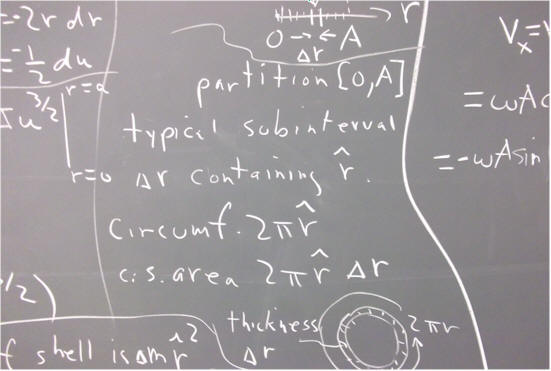 = -2r dr
= -1/2 du
u^3/2
r=a
r=0
r
0 → ← A
Δr
partition [0,A]
typical subinterval
Δr containing r̂.
circumf. 2πr̂
c.s. area 2πr̂ Δr
thickness
Δr
2πr
/2)
f shell is Δm r̂²
Vx =
= wA
= -wAsin